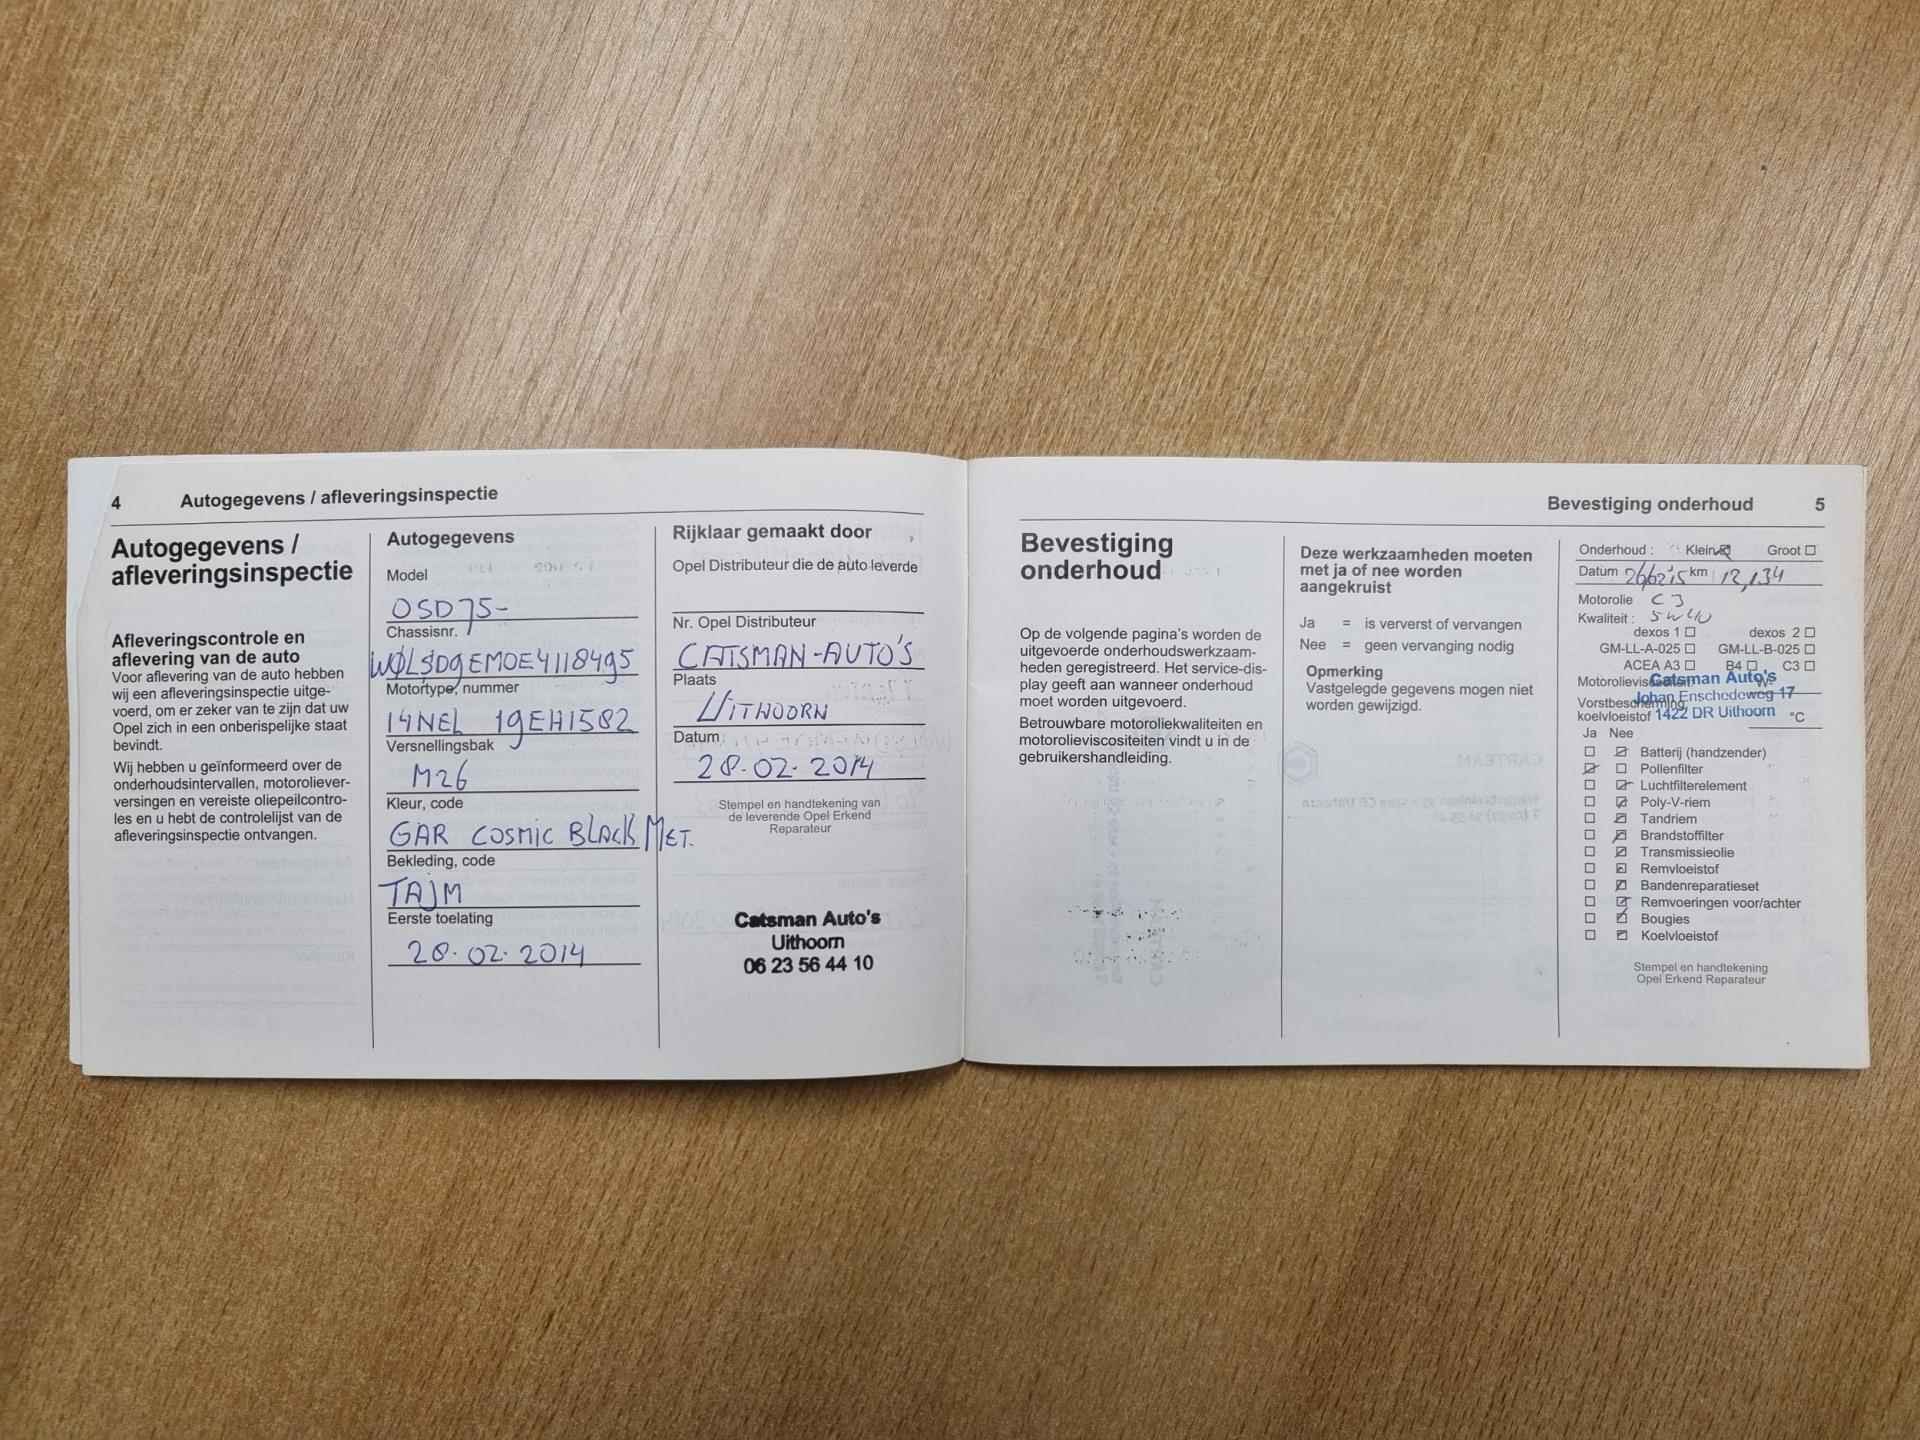 4 Autogegevens / afleveringsinspectie
Autogegevens /
afleveringsinspectie
Afleveringscontrole en
aflevering van de auto
Voor aflevering van de auto hebben
wij een afleveringsinspectie uitge-
voerd, om er zeker van te zijn dat uw
Opel zich in een onberispelijke staat
bevindt.
Wij hebben u geïnformeerd over de
onderhoudsintervallen, motoroliever-
versingen en vereiste oliepeilcontro-
les en u hebt de controlelijst van de
afleveringsinspectie ontvangen.
Autogegevens
Model
OSD75-
Chassisnr.
WØLSD9EMOE4118495
Motortype, nummer
14NEL 19EH1582
Versnellingsbak
M26
Kleur, code
GAR COSMIC BLACK MET.
Bekleding, code
TAJM
Eerste toelating
28-02-2014
Rijklaar gemaakt door
Opel Distributeur die de auto leverde
Nr. Opel Distributeur
CATSMAN-AUTO'S
Plaats
UITHOORN
Datum
28-02-2014
Stempel en handtekening van
de leverende Opel Erkend
Reparateur
Catsman Auto's
Uithoorn
06 23 56 44 10
Bevestiging onderhoud 5
Bevestiging
onderhoud
Op de volgende pagina's worden de
uitgevoerde onderhoudswerkzaam-
heden geregistreerd. Het service-dis-
play geeft aan wanneer onderhoud
moet worden uitgevoerd.
Betrouwbare motoroliekwaliteiten en
motorolieviscositeiten vindt u in de
gebruikershandleiding.
Deze werkzaamheden moeten
met ja of nee worden
aangekruist
Ja = is ververst of vervangen
Nee = geen vervanging nodig
Opmerking
Vastgelegde gegevens mogen niet
worden gewijzigd.
Onderhoud : Klein Groot
Datum km
Motorolie C3
Kwaliteit : 5W40
dexos 1 dexos 2
GM-LL-A-025 GM-LL-B-025
ACEA A3 B4 C3
Catsman Auto's
Johan Enschedeweg 17
1422 DR Uithoorn
Vorstbescherming
koelvloeistof °C
Ja Nee
Batterij (handzender)
Pollenfilter
Luchtfilterelement
Poly-V-riem
Tandriem
Brandstoffilter
Transmissieolie
Remvloeistof
Bandenreparatieset
Remvoeringen voor/achter
Bougies
Koelvloeistof
Stempel en handtekening
Opel Erkend Reparateur